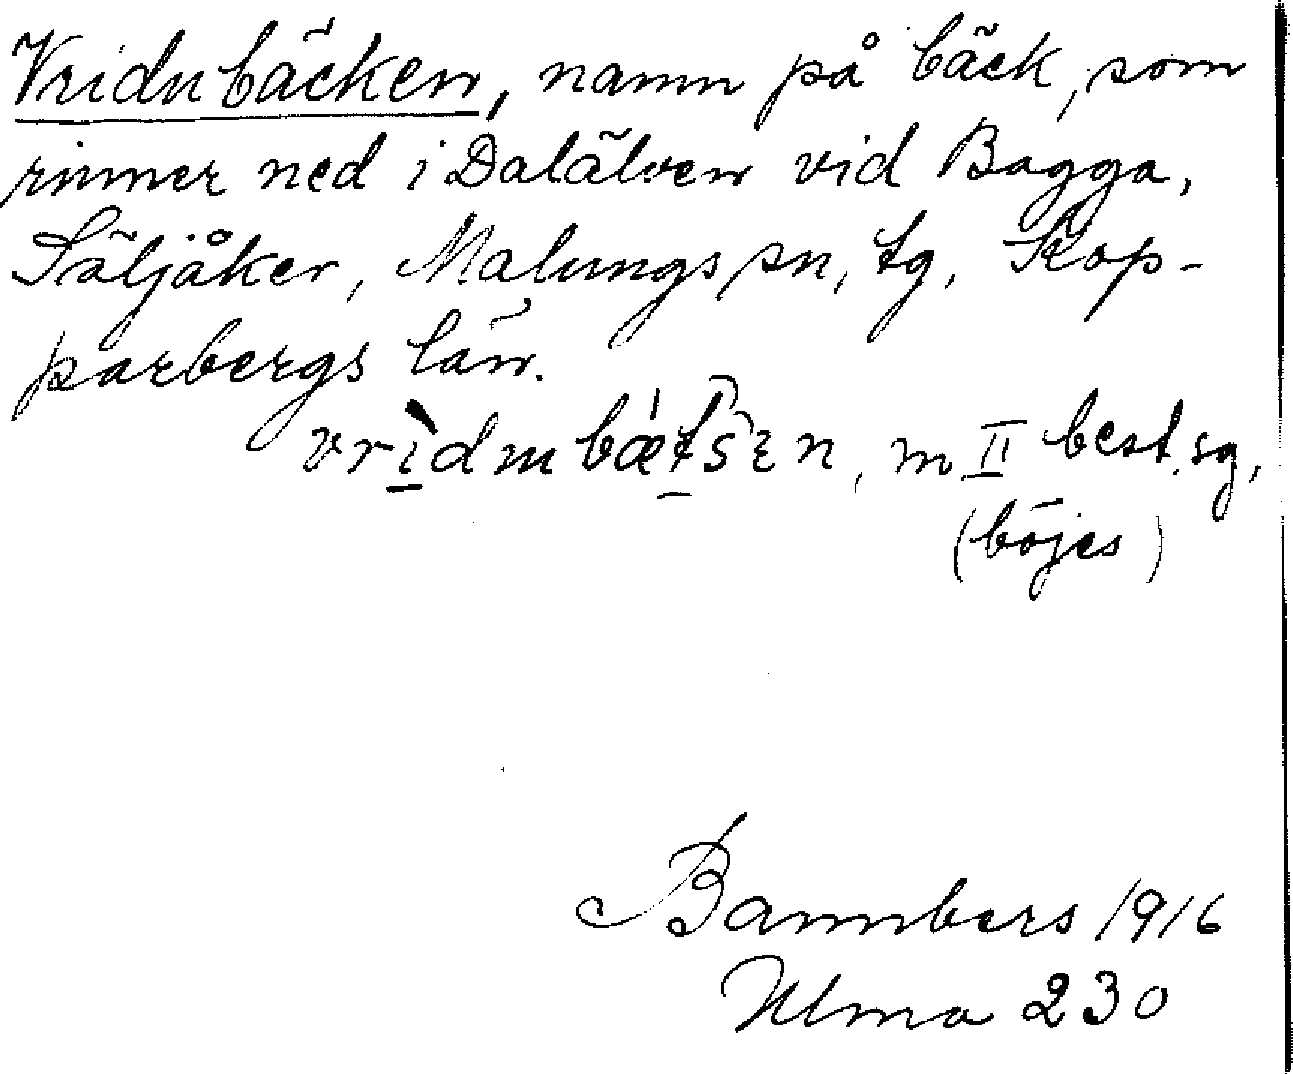 Vridnbäcken, namn på bäck, som
rinner ned i Dalälven vid Bagga,
Säljåker, Malungs sn, tg, Kop-
parbergs län.
m II best. sg,
(böjes)
Bannbers 1916
Ulma 230